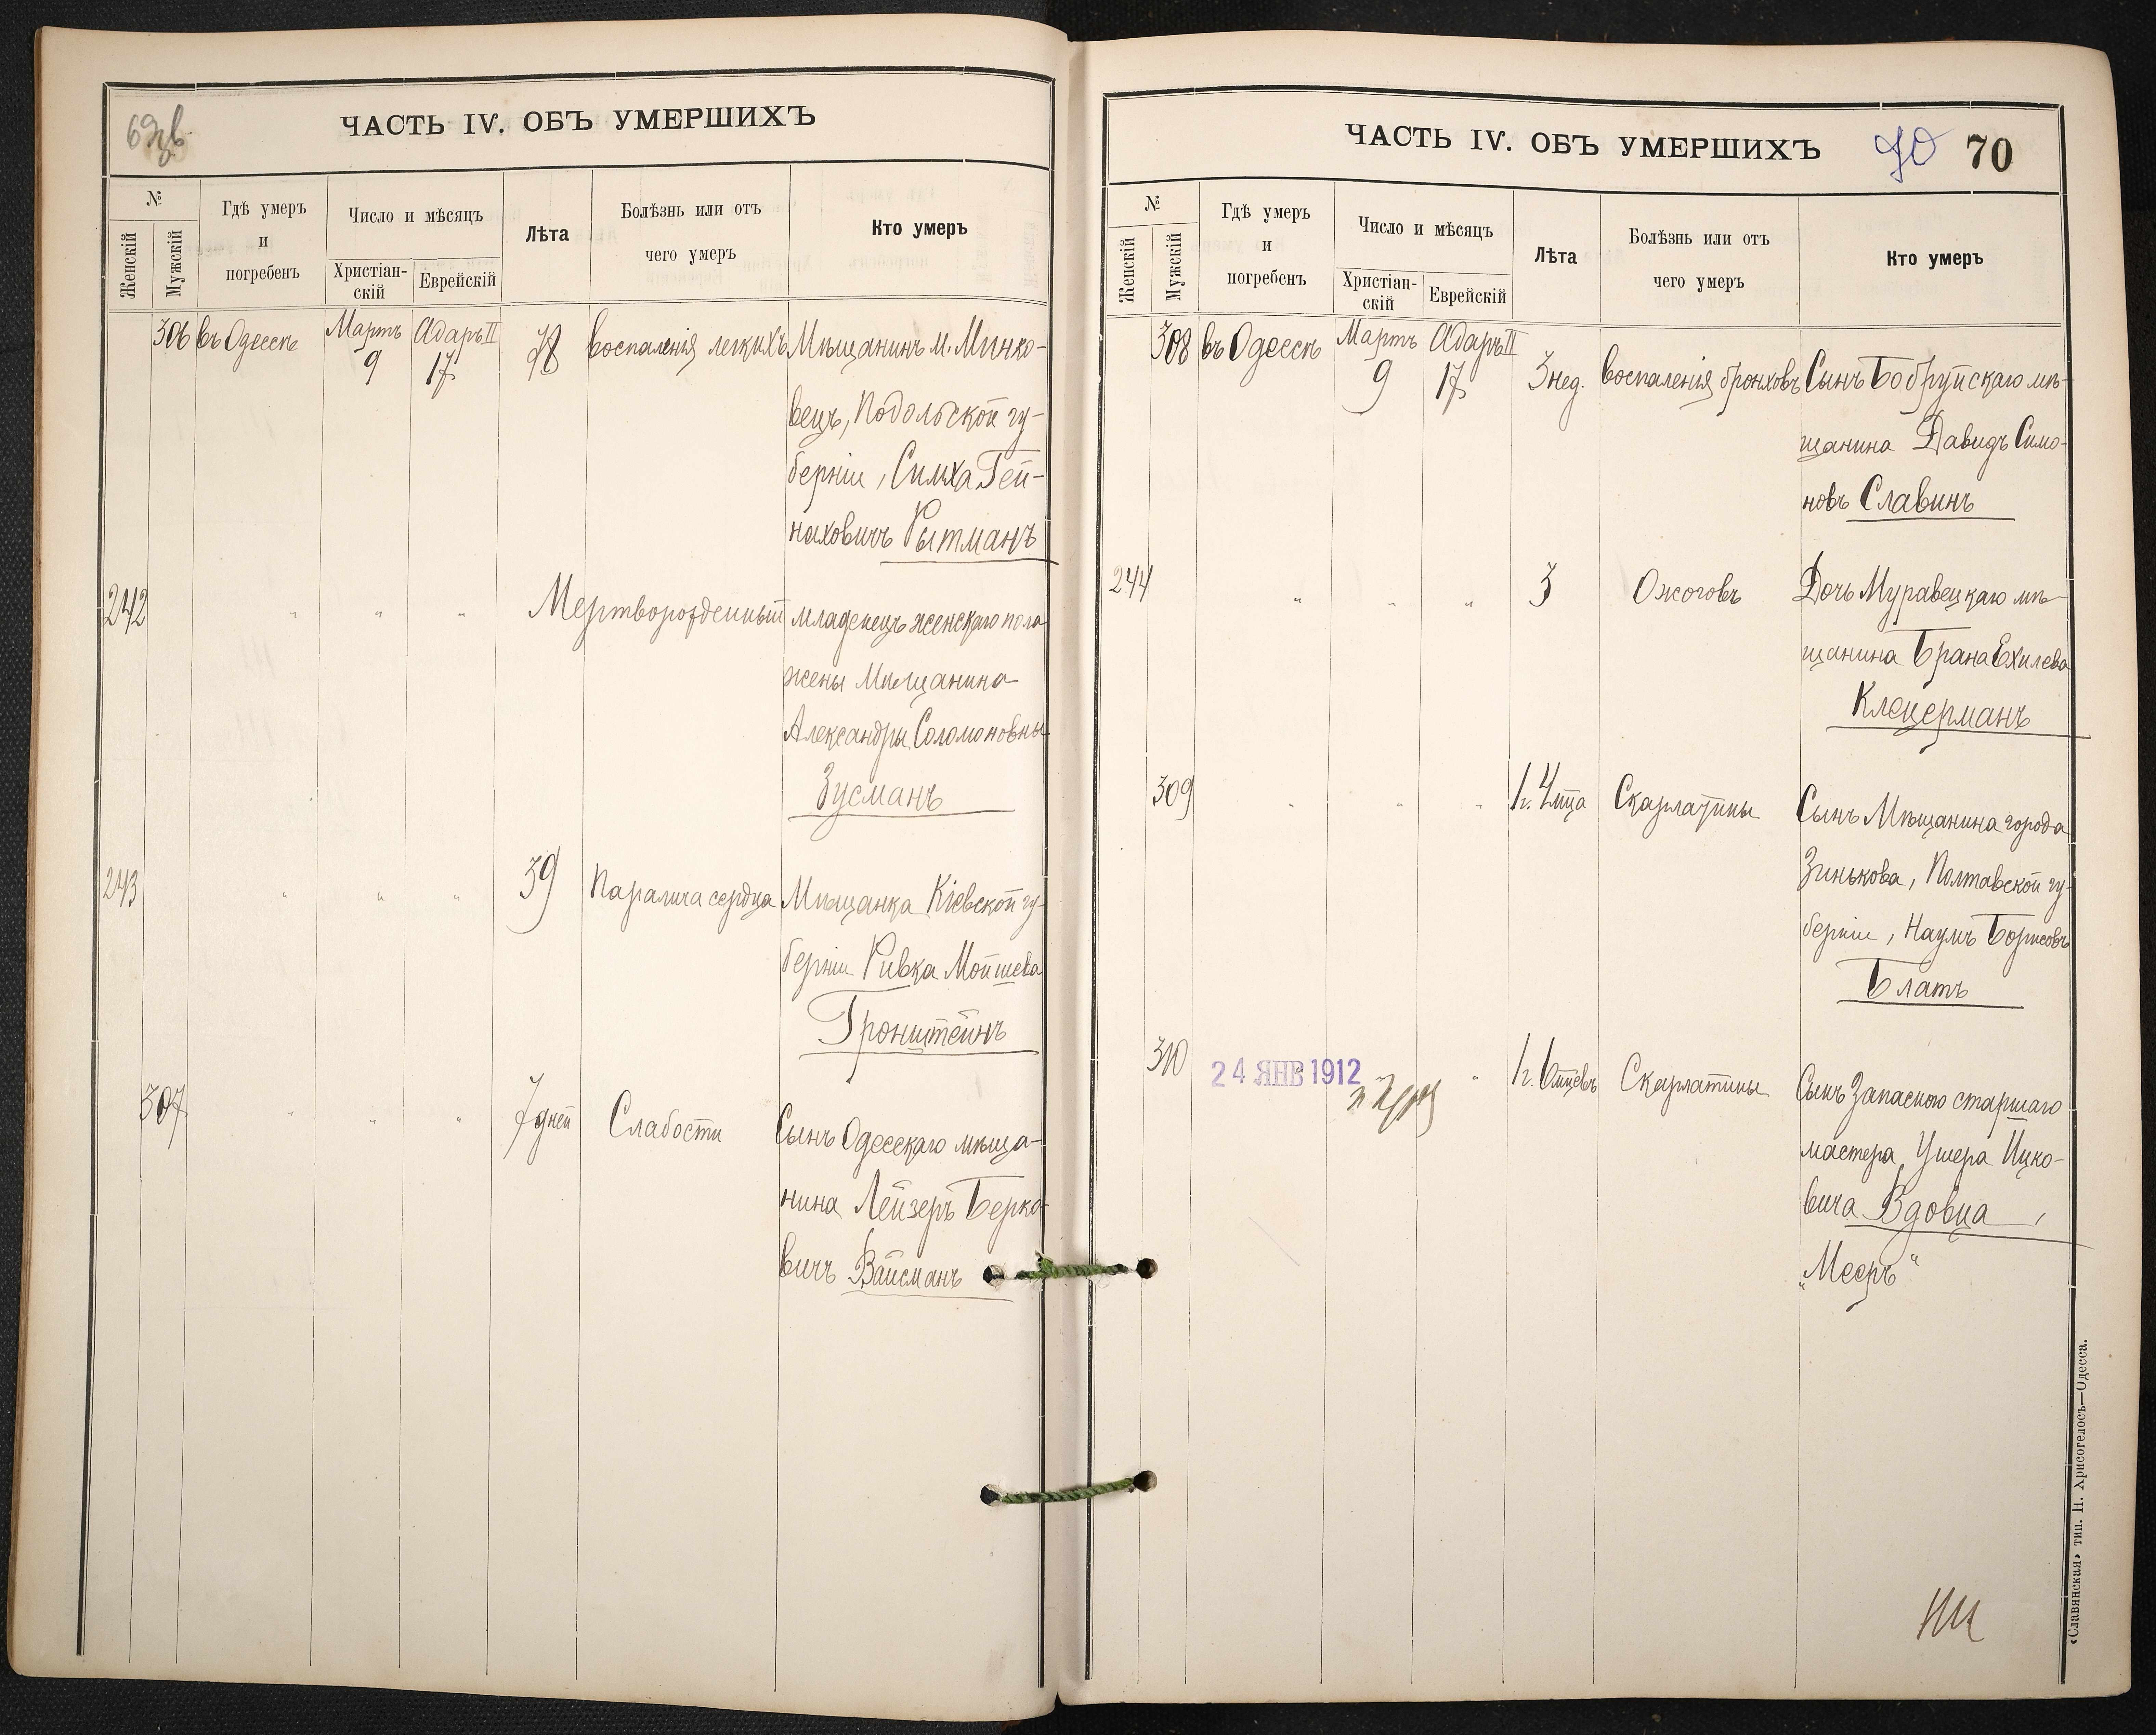 69 об
ЧАСТЬ IV. ОБЪ УМЕРШИХЪ
№
Женскій
Мужскій
Гдѣ умеръ
и
погребенъ
Число и мѣсяцъ
Христіан-
скій
Еврейскій
Лѣта
Болѣзнь или отъ
чего умеръ
Кто умеръ
306 въ Одессѣ Мартъ 9 Адаръ II 17 78 воспаленія легкихъ Мѣщанинъ м. Минко-
вецъ, Подольской гу-
берніи, Симха Гей-
наховичъ Рытманъ
242 " " " Мертворожденный младенецъ женскаго пола
жены Мѣщанина
Александры Соломоновны
Зусманъ
243 " " " 39 Паралича сердца Мѣщанка Кіевской гу-
берніи Ривка Мойшева
Гронштейнъ
307 " " " 7 дней Слабости Сынъ Одесскаго мѣща-
нина Лейзеръ Берко-
вичъ Вайсманъ
ЧАСТЬ IV. ОБЪ УМЕРШИХЪ
70 70
№
Женскій
Мужскій
Гдѣ умеръ
и
погребенъ
Число и мѣсяцъ
Христіан-
скій
Еврейскій
Лѣта
Болѣзнь или отъ
чего умеръ
Кто умеръ
308 въ Одессѣ Мартъ 9 Адаръ II 17 3 нед. воспаленія бронховъ Сынъ Бобруйскаго мѣ-
щанина Давидъ Симо-
новъ Славинъ
244 " " " 3 Ожоговъ Дочь Муравецкаго мѣ-
щанина Брана Ехилева
Клецерманъ
309 " " " 1 г. 4 мца Скарлатины Сынъ Мѣщанина города
Зинькова, Полтавской гу-
берніи, Наумъ Борисовъ
Блатъ
310 24 ЯНВ 1912 " " 1 г. 6 мцевъ Скарлатины Сынъ Запасного старшаго
мастера Ушера Ицко-
вича Вдовца,
„Мееръ“
«Славянская» тип. Н. Хрисогелосъ—Одесса.